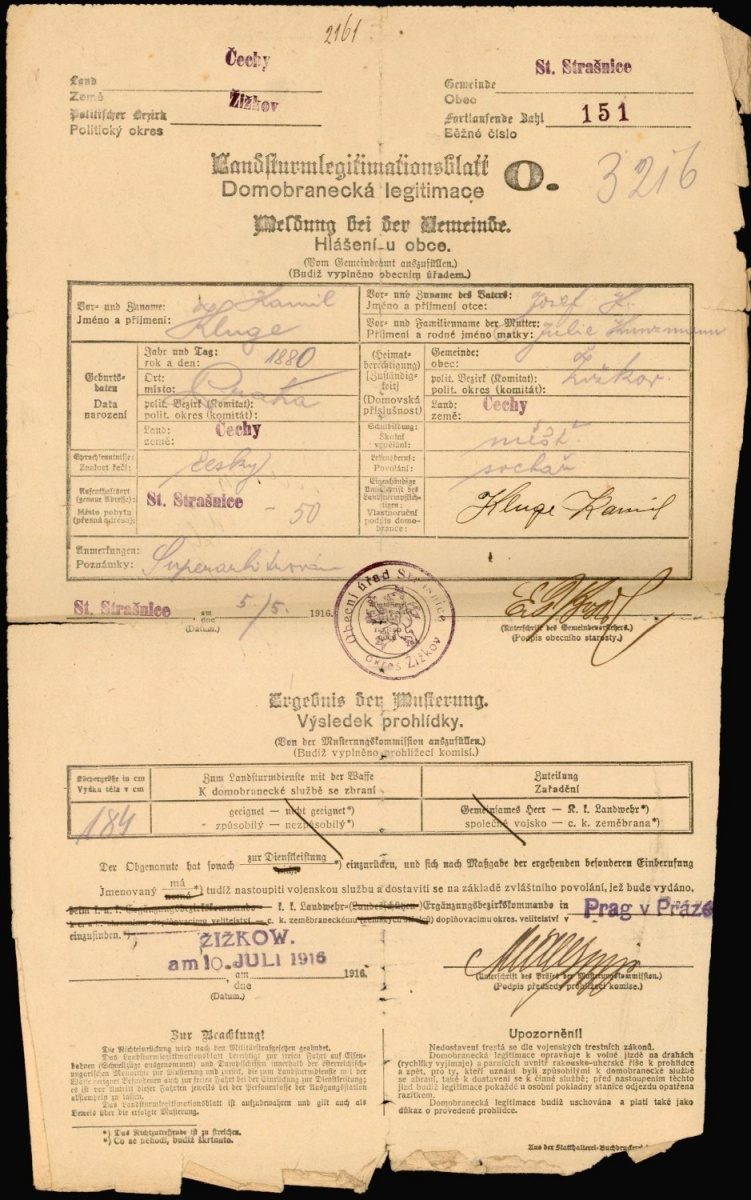 2161
Čechy
St. Strašnice
Land
Země
Gemeinde
Obec
Žižkov
Politischer Bezirk
Politický okres
Fortlaufende Zahl
Běžné číslo
151
Landsturmlegitimationsblatt
Domobranecká legitimace
O.
3216
Meldung bei der Gemeinde.
Hlášení u obce.
(Vom Gemeindeamt auszufüllen.)
(Budiž vyplněno obecním úřadem.)
Vor- und Zuname:
Jméno a příjmení:
Kamil
Kluge
Vor- und Zuname des Vaters:
Jméno a příjmení otce:
Josef K.
Vor- und Familienname der Mutter:
Příjmení a rodné jméno matky:
Julie Kunzmann
Geburts-
daten
Data
narození
Jahr und Tag:
rok a den:
1880
Ort:
místo:
Praha
polit. Bezirk (Komitat):
polit. okres (komitát):
Land:
země:
Čechy
(Heimat-
berechtigung)
(Zuständig-
keit)
(Domovská
příslušnost)
Gemeinde:
obec:
Žižkov
polit. Bezirk (Komitat):
polit. okres (komitát):
Land:
země:
Čechy
Schulbildung:
Školní
vzdělání:
měšť.
Sprachkenntnisse:
Znalost řečí:
česky
Lebensberuf:
Povolání:
sochař
Aufenthaltsort
(genaue Adresse):
Místo pobytu
(přesná adresa):
St. Strašnice - 50
Eigenhändige
Unterschrift des
Landsturmpflich-
tigen:
Vlastnoruční
podpis domo-
brance:
Kluge Kamil
Anmerkungen:
Poznámky:
Superarbitrován
St. Strašnice
am
dne
5/5. 1916.
(Datum.)
Obecní úřad Strašnice
okres Žižkov
(Unterschrift des Gemeindevorstehers.)
(Podpis obecního starosty.)
Ergebnis der Musterung.
Výsledek prohlídky.
(Von der Musterungskommission auszufüllen.)
(Budiž vyplněno prohlížecí komisí.)
Körpergröße in cm
Výška těla v cm
Zum Landsturmdienste mit der Waffe
K domobranecké službě se zbraní
Zuteilung
Zařadění
184
geeignet — nicht geeignet*)
způsobilý — nezpůsobilý*)
Gemeinsames Heer — K. k. Landwehr*)
společné vojsko — c. k. zeměbrana*)
Der Obgenannte hat sonach zur Dienstleistung nicht *) einzurücken, und sich nach Maßgabe der ergehenden besonderen Einberufung
Jmenovaný má nemá *) tudíž nastoupiti vojenskou službu a dostaviti se na základě zvláštního povolání, jež bude vydáno,
beim k. u. k. Ergänzungsbezirkskommando — k. k. Landwehr-(Landesschützen-)Ergänzungsbezirkskommando in
k c. a k. doplňovacímu velitelství — c. k. zeměbraneckému (zemských střelců) doplňovacímu okres. velitelství v
Prag v Praze
einzufinden.*)
ŽIŽKOW.
am 10. JULI 1916
am
dne
1916.
(Datum.)
(Unterschrift des Präses der Musterungskommission.)
(Podpis předsedy prohlížecí komise.)
Zur Beachtung!
Die Nichteinrückung wird nach den Militärstrafgesetzen geahndet.
Das Landsturmlegitimationsblatt berechtigt zur freien Fahrt auf Eisen-
bahnen (Schnellzüge ausgenommen) und Dampfschiffen innerhalb der österreichisch-
ungarischen Monarchie zur Musterung und zurück, die zum Landsturmdienste mit der
Waffe geeignet Befundenen auch zur freien Fahrt bei der Einrückung zur Dienstleistung;
es ist vor Antritt dieser Fahrten jeweils bei der Personenkasse der Ausgangsstation
abstempeln zu lassen.
Das Landsturmlegitimationsblatt ist aufzubewahren und gilt auch als
Beweis über die erfolgte Musterung.
*) Das Nichtzutreffende ist zu streichen.
*) Co se nehodí, budiž škrtnuto.
Upozornění!
Nedostavení trestá se dle vojenských trestních zákonů.
Domobranecká legitimace opravňuje k volné jízdě na drahách
(rychlíky vyjímaje) a parnících uvnitř rakousko-uherské říše k prohlídce
a zpět, pro ty, kteří uznáni byli způsobilými k domobranecké službě
se zbraní, také k dostavení se k činné službě; před nastoupením těchto
jízd budiž legitimace pokaždé u osobní pokladny stanice odjezdu opatřena
razítkem.
Domobranecká legitimace budiž uschována a platí také jako
důkaz o provedené prohlídce.
Aus der Statthalterei-Buchdruckerei